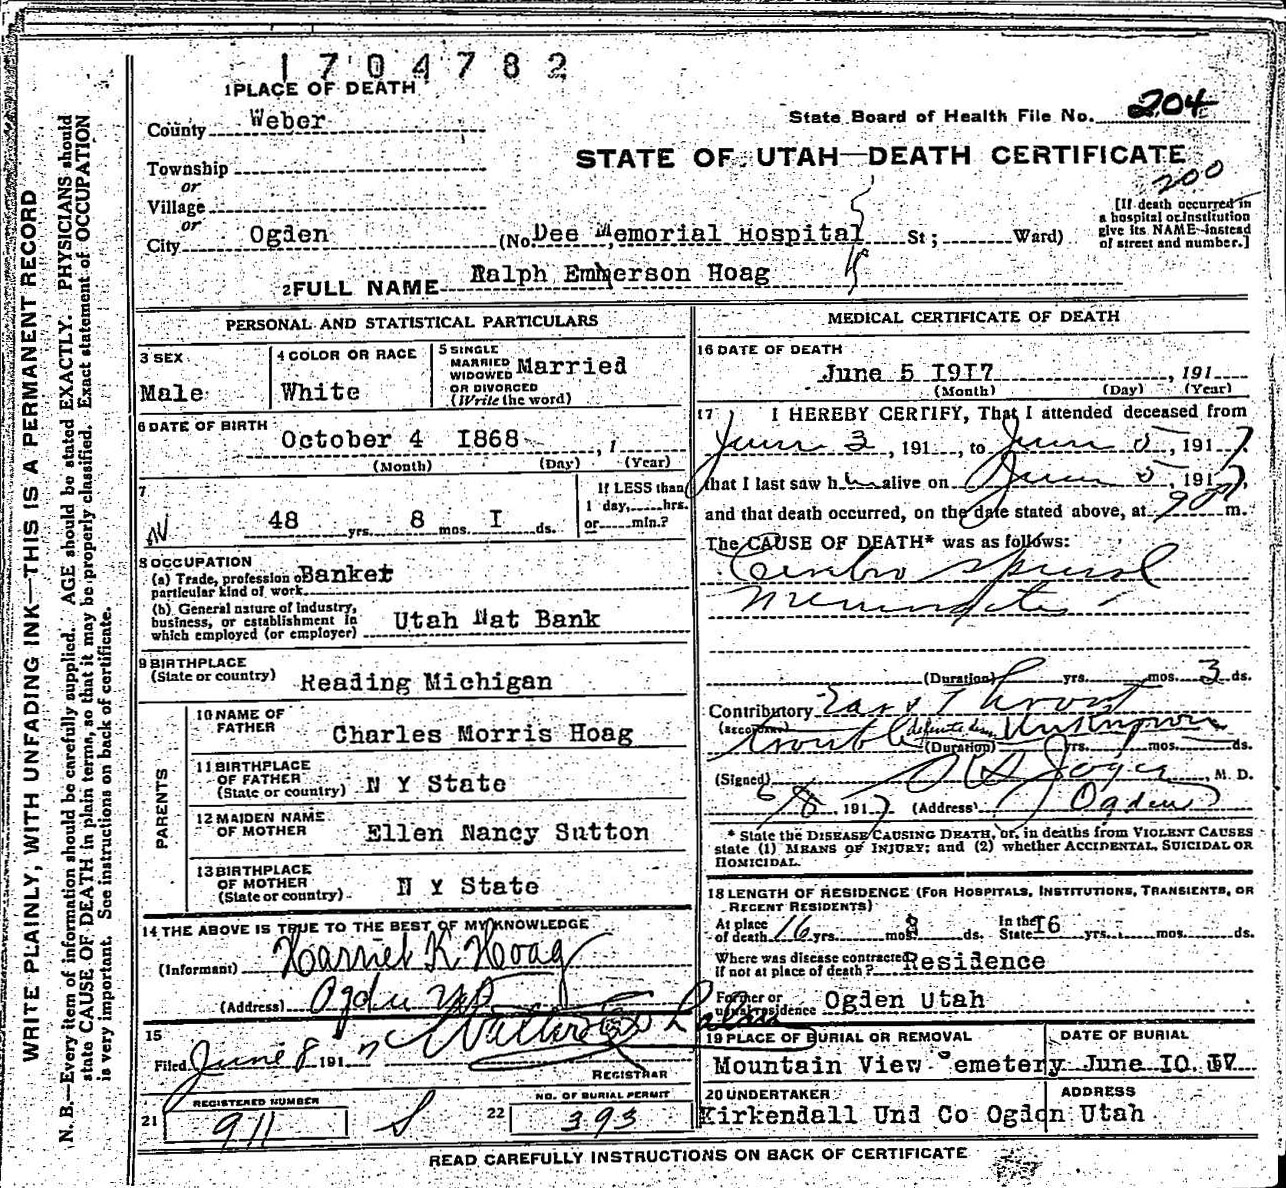 1704782
1 PLACE OF DEATH
County Weber
State Board of Health File No. 204
STATE OF UTAH—DEATH CERTIFICATE
200
Township
or
Village
or
City Ogden (No. Dee Memorial Hospital St; Ward)
[If death occurred in
a hospital or institution
give its NAME instead
of street and number.]
2 FULL NAME Ralph Emmerson Hoag
PERSONAL AND STATISTICAL PARTICULARS
3 SEX
Male
4 COLOR OR RACE
White
5 SINGLE
MARRIED
WIDOWED
OR DIVORCED
(Write the word)
Married
6 DATE OF BIRTH
October 4 I868 , 1
(Month) (Day) (Year)
7
48 yrs. 8 mos. I ds.
If LESS than
1 day, hrs.
or min.?
8 OCCUPATION
(a) Trade, profession or
particular kind of work Banker
(b) General nature of Industry,
business, or establishment in
which employed (or employer) Utah Nat Bank
9 BIRTHPLACE
(State or country) Reading Michigan
PARENTS
10 NAME OF
FATHER Charles Morris Hoag
11 BIRTHPLACE
OF FATHER
(State or country) N Y State
12 MAIDEN NAME
OF MOTHER Ellen Nancy Sutton
13 BIRTHPLACE
OF MOTHER
(State or country) N Y State
14 THE ABOVE IS TRUE TO THE BEST OF MY KNOWLEDGE
(Informant) Harriet K Hoag
(Address) Ogden
15
Filed June 8 1917
REGISTRAR
REGISTERED NUMBER
21 911
NO. OF BURIAL PERMIT
22 393
MEDICAL CERTIFICATE OF DEATH
16 DATE OF DEATH
June 5 I9I7 , 191
(Month) (Day) (Year)
17 I HEREBY CERTIFY, That I attended deceased from
June 3, 191 , to June 5, 1917.
that I last saw h alive on June 5, 1917,
and that death occurred, on the date stated above, at m.
The CAUSE OF DEATH* was as follows:
Cerebro Spinal
Meningitis
(Duration) yrs. mos. 3 ds.
Contributory Ear & Throat
trouble definite Unknown
(Duration) yrs. mos. ds.
(Signed) Joyce, M. D.
6/8 1917 (Address) Ogden
* State the DISEASE CAUSING DEATH, or, in deaths from VIOLENT CAUSES
state (1) MEANS OF INJURY; and (2) whether ACCIDENTAL, SUICIDAL OR
HOMICIDAL.
18 LENGTH OF RESIDENCE (FOR HOSPITALS, INSTITUTIONS, TRANSIENTS, OR
RECENT RESIDENTS)
At place
of death 16 yrs. mos. 8 ds.
In the
State I6 yrs. mos. ds.
Where was disease contracted,
if not at place of death? Residence
Former or
usual residence Ogden Utah
19 PLACE OF BURIAL OR REMOVAL
Mountain View Cemetery
DATE OF BURIAL
June IO, I7
20 UNDERTAKER
Kirkendall Und Co
ADDRESS
Ogden Utah
READ CAREFULLY INSTRUCTIONS ON BACK OF CERTIFICATE
WRITE PLAINLY, WITH UNFADING INK—THIS IS A PERMANENT RECORD
N. B.—Every item of information should be carefully supplied. AGE should be stated EXACTLY. PHYSICIANS should
state CAUSE OF DEATH in plain terms, so that it may be properly classified. Exact statement of OCCUPATION
is very important. See instructions on back of certificate.